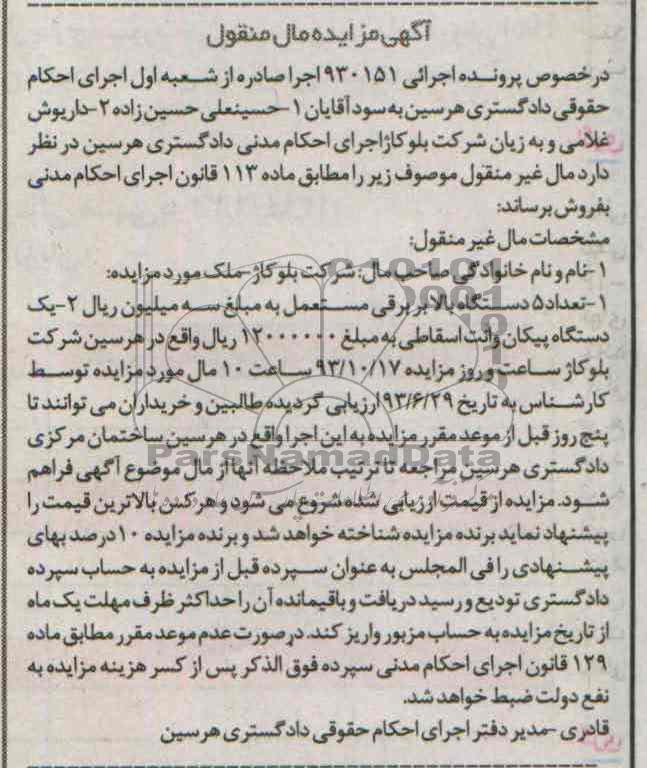 آگهی مزایده مال منقول
درخصوص پرونده اجرائی ۹۳۰۱۵۱ اجرا صادره از شعبه اول اجرای احکام
حقوقی دادگستری هرسین به سود آقایان ۱-حسینعلی حسین زاده ۲-داریوش
غلامی و به زیان شرکت بلوکاژ اجرای احکام مدنی دادگستری هرسین در نظر
دارد مال غیر منقول موصوف زیر را مطابق ماده ۱۱۳ قانون اجرای احکام مدنی
بفروش برساند:
مشخصات مال غیر منقول:
۱-نام و نام خانوادگی صاحب مال: شرکت بلوکاژ-ملک مورد مزایده:
۱-تعداد۵ دستگاه بالابر برقی مستعمل به مبلغ سه میلیون ریال ۲-یک
دستگاه پیکان وانت اسقاطی به مبلغ ۱۲۰۰۰۰۰۰ ریال واقع در هرسین شرکت
بلوکاژ ساعت و روز مزایده ۹۳/۱۰/۱۷ ساعت ۱۰ مال مورد مزایده توسط
کارشناس به تاریخ ۹۳/۶/۲۹ ارزیابی گردیده طالبین و خریداران می توانند تا
پنج روز قبل از موعد مقرر مزایده به این اجرا واقع در هرسین ساختمان مرکزی
دادگستری هرسین مراجعه تا ترتیب ملاحظه آنها از مال موضوع آگهی فراهم
شود. مزایده از قیمت ارزیابی شده شروع می شود و هر کس بالاترین قیمت را
پیشنهاد نماید برنده مزایده شناخته خواهد شد و برنده مزایده ۱۰ درصد بهای
پیشنهادی را فی المجلس به عنوان سپرده قبل از مزایده به حساب سپرده
دادگستری تودیع و رسید دریافت و باقیمانده آن را حداکثر ظرف مهلت یک ماه
از تاریخ مزایده به حساب مزبور واریز کند. در صورت عدم موعد مقرر مطابق ماده
۱۲۹ قانون اجرای احکام مدنی سپرده فوق الذکر پس از کسر هزینه مزایده به
نفع دولت ضبط خواهد شد.
قادری -مدیر دفتر اجرای احکام حقوقی دادگستری هرسین
ParsNamadData